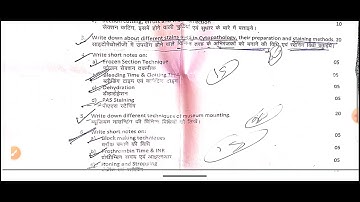 सेक्शन कटिंग, इसमें होने वाली त्रुटियां एवं सुधार के बारे में बताइये।
3 Write down about different stains used in Cytopathology, their preparation and staining methods. 20
साइटोपैथोलॉजी में उपयोग होने वाले विभिन्न तरह के अभिरंजकों को बनाने की विधि एवं स्टेनिंग विधि बताइये।
Write short notes on:
a) Frozen Section Technique 05
फ्रोजन सेक्शन तकनीक
b) Bleeding Time & Clotting Time 05
ब्लीडिंग टाइम एवं क्लॉटिंग टाइम
c) Dehydration 05
डीहाईड्रेशन
d) PAS Staining 05
पीएएस स्टेनिंग
Write down different techniques of museum mounting. 20
Write short notes on:
a) Block making techniques 05
ब्लॉक बनाने की विधि
b) Prothrombin Time & INR 05
प्रोथ्रोम्बिन समय एवं आइएनआर
c) Honing and Stropping 05